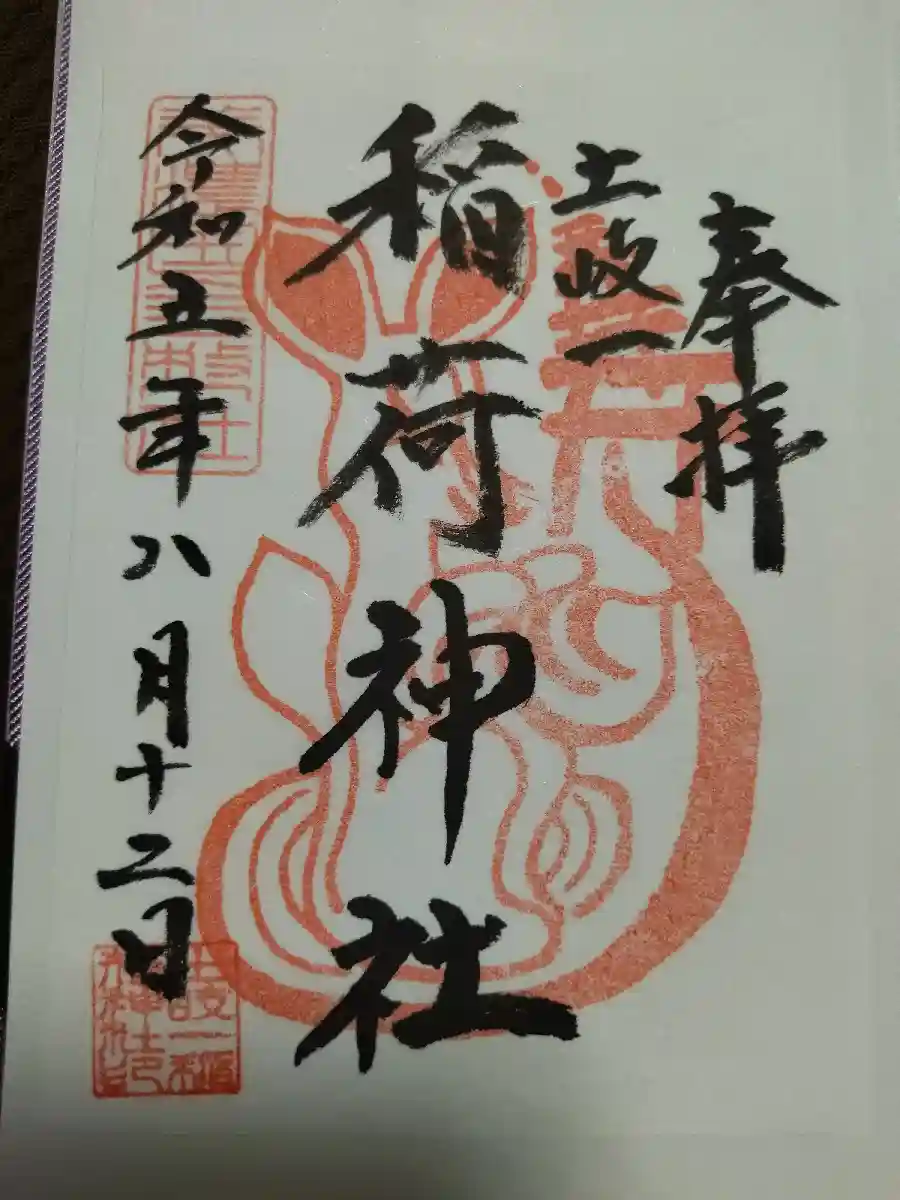 奉拝
土岐一
稲荷神社
令和五年八月十二日